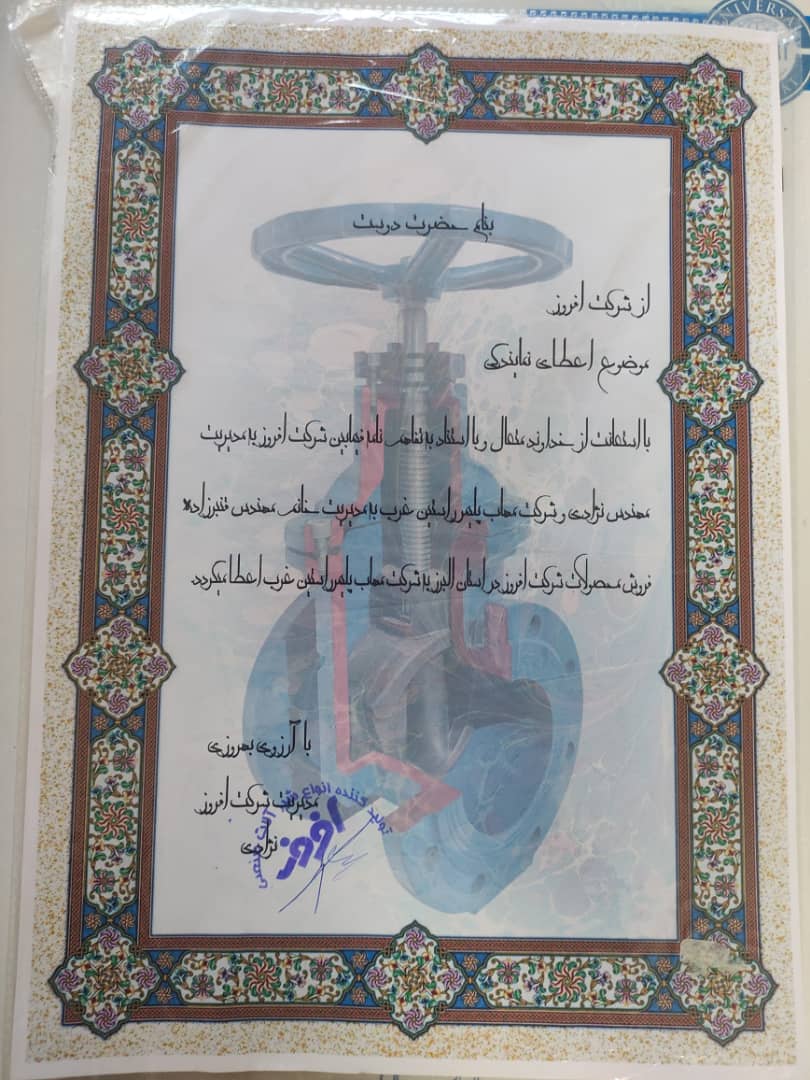 بنام حضرت دوست
از شرکت افروز
موضوع اعطای نمایندگی
با استعانت از خداوند متعال و با استناد به تفاهم نامه فیمابین شرکت افروز به مدیریت
مهندس نژادی و شرکت مهاب پلیمر راستین غرب به مدیریت خانم مهندس قنبرزاده
فروش محصولات شرکت افروز در استان البرز به شرکت مهاب پلیمر راستین غرب اعطا میگردد
با آرزوی بهروزی
مدیریت شرکت افروز
نژادی
تولید کننده انواع شیر آلات صنعتی
افروز
UNIVERSAL